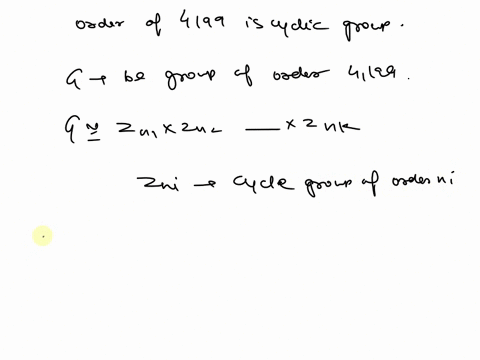 order of 4199 is cyclic group.
G → be group of order 4,199.
G ≅ Zn₁ × Zn₂ — × Znk
Zni → cycle group of order ni